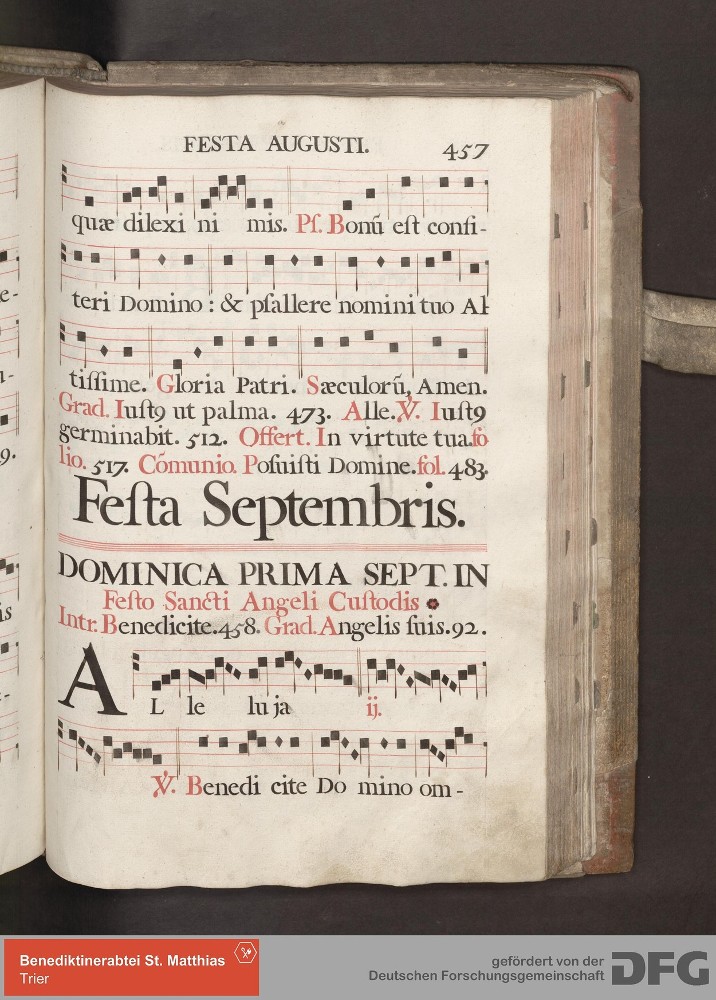 FESTA AUGUSTI. 457
quæ dilexi ni mis. Pſ. Bonū eſt confi-
teri Domino : & pſallere nomini tuo Al
tiſſime. Gloria Patri. Sæculorū, Amen.
Grad. Iuſt9 ut palma. 473. Alle. V. Iuſt9
germinabit. 512. Offert. In virtute tua. fo
lio. 517. Cōmunio. Poſuiſti Domine. fol. 483.
Feſta Septembris.
DOMINICA PRIMA SEPT. IN
Feſto Sancti Angeli Cuſtodis
Intr. Benedicite. 458. Grad. Angelis ſuis. 92.
AL le lu ja ij.
V. Benedi cite Do mino om-
e-
9.
is
Benediktinerabtei St. Matthias
Trier
gefördert von der
Deutschen Forschungsgemeinschaft
DFG